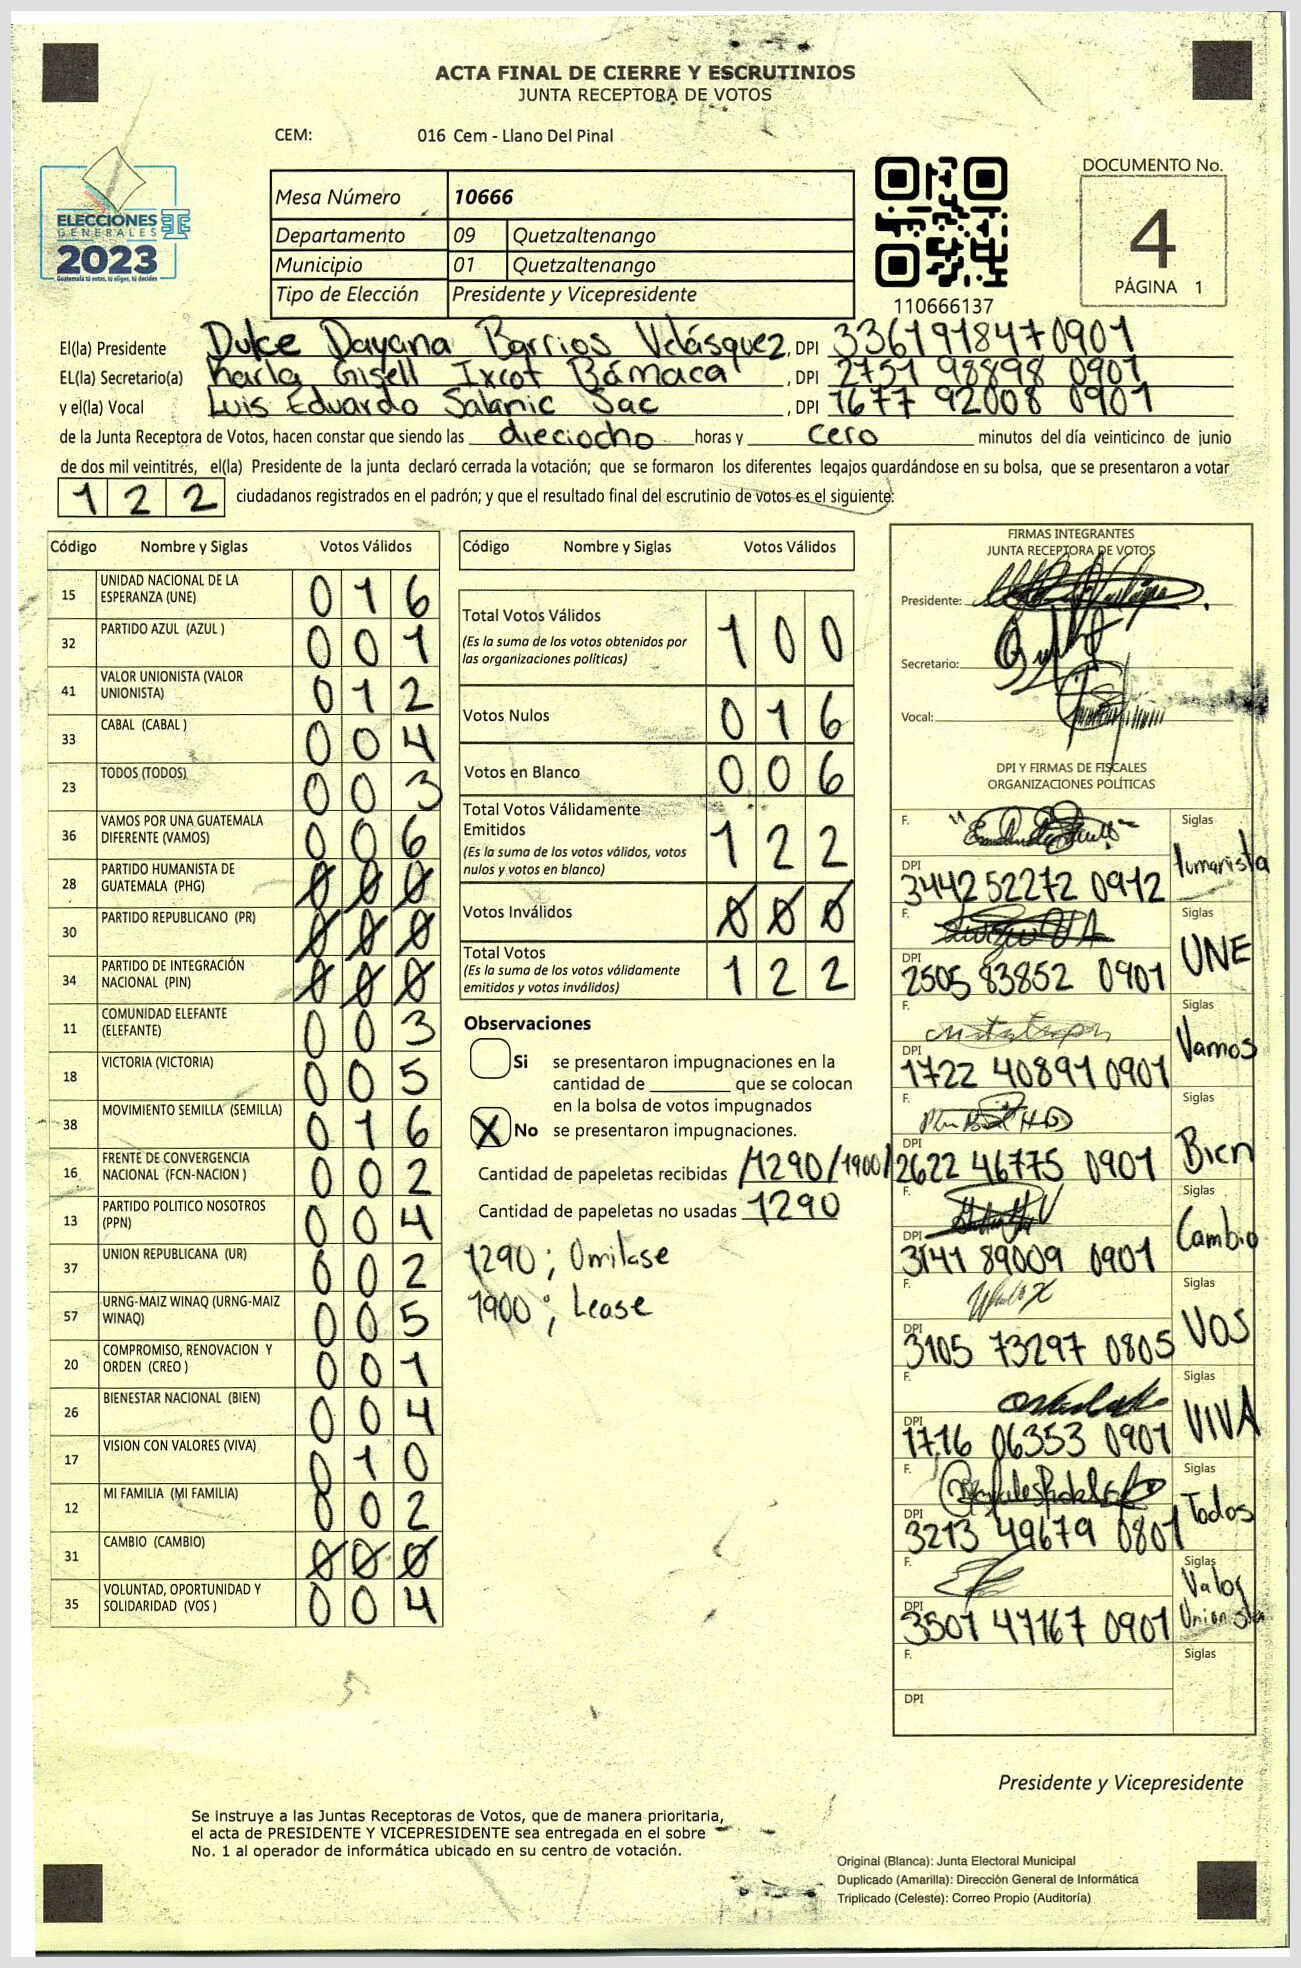 ACTA FINAL DE CIERRE Y ESCRUTINIOS
JUNTA RECEPTORA DE VOTOS
CEM: 016 Cem - Llano Del Pinal
ELECCIONES
GENERALES
2023
Guatemala tú votas, tú eliges, tú decides
Mesa Número 10666
Departamento 09 Quetzaltenango
Municipio 01 Quetzaltenango
Tipo de Elección Presidente y Vicepresidente
110666137
DOCUMENTO No.
4
PÁGINA 1
El(la) Presidente Dulce Dayana Barrios Velásquez, DPI 3361918470901
EL(la) Secretario(a) Karla Gisell Ixcot Bámaca, DPI 2751 98898 0901
y el(la) Vocal Luis Eduardo Salanic Sac, DPI 1677 92008 0901
de la Junta Receptora de Votos, hacen constar que siendo las dieciocho horas y cero minutos del día veinticinco de junio
de dos mil veintitrés, el(la) Presidente de la junta declaró cerrada la votación; que se formaron los diferentes legajos guardándose en su bolsa, que se presentaron a votar
122 ciudadanos registrados en el padrón; y que el resultado final del escrutinio de votos es el siguiente:
Código Nombre y Siglas Votos Válidos
15 UNIDAD NACIONAL DE LA ESPERANZA (UNE) 016
32 PARTIDO AZUL (AZUL ) 001
41 VALOR UNIONISTA (VALOR UNIONISTA) 012
33 CABAL (CABAL ) 004
23 TODOS (TODOS) 003
36 VAMOS POR UNA GUATEMALA DIFERENTE (VAMOS) 006
28 PARTIDO HUMANISTA DE GUATEMALA (PHG) 000
30 PARTIDO REPUBLICANO (PR) 000
34 PARTIDO DE INTEGRACIÓN NACIONAL (PIN) 000
11 COMUNIDAD ELEFANTE (ELEFANTE) 003
18 VICTORIA (VICTORIA) 005
38 MOVIMIENTO SEMILLA (SEMILLA) 016
16 FRENTE DE CONVERGENCIA NACIONAL (FCN-NACION ) 002
13 PARTIDO POLITICO NOSOTROS (PPN) 004
37 UNION REPUBLICANA (UR) 002
57 URNG-MAIZ WINAQ (URNG-MAIZ WINAQ) 005
20 COMPROMISO, RENOVACION Y ORDEN (CREO ) 001
26 BIENESTAR NACIONAL (BIEN) 004
17 VISION CON VALORES (VIVA) 010
12 MI FAMILIA (MI FAMILIA) 002
31 CAMBIO (CAMBIO) 000
35 VOLUNTAD, OPORTUNIDAD Y SOLIDARIDAD (VOS ) 004
Código Nombre y Siglas Votos Válidos
Total Votos Válidos 100
(Es la suma de los votos obtenidos por
las organizaciones políticas)
Votos Nulos 016
Votos en Blanco 006
Total Votos Válidamente
Emitidos 122
(Es la suma de los votos válidos, votos
nulos y votos en blanco)
Votos Inválidos 000
Total Votos 122
(Es la suma de los votos válidamente
emitidos y votos inválidos)
Observaciones
Si se presentaron impugnaciones en la
cantidad de ________ que se colocan
en la bolsa de votos impugnados
X No se presentaron impugnaciones.
Cantidad de papeletas recibidas /1290/1900/
Cantidad de papeletas no usadas 1290
1290 ; Omitase
1900 ; Lease
FIRMAS INTEGRANTES
JUNTA RECEPTORA DE VOTOS
Presidente:
Secretario:
Vocal:
DPI Y FIRMAS DE FISCALES
ORGANIZACIONES POLÍTICAS
F. Siglas
DPI 3442 52272 0912 Humanista
F. Siglas
DPI 2505 83852 0901 UNE
F. Siglas
DPI 1722 40891 0901 Vamos
F. Siglas
DPI 2622 46775 0901 Bien
F. Siglas
DPI 3141 89009 0901 Cambio
F. Siglas
DPI 3105 73297 0805 VOS
F. Siglas
DPI 1716 06353 0901 VIVA
F. Siglas
DPI 3213 49679 0801 Todos
F. Siglas
DPI 3501 47167 0901 Valor Unionista
F. Siglas
DPI
Presidente y Vicepresidente
Se instruye a las Juntas Receptoras de Votos, que de manera prioritaria,
el acta de PRESIDENTE Y VICEPRESIDENTE sea entregada en el sobre
No. 1 al operador de informática ubicado en su centro de votación.
Original (Blanca): Junta Electoral Municipal
Duplicado (Amarilla): Dirección General de Informática
Triplicado (Celeste): Correo Propio (Auditoría)